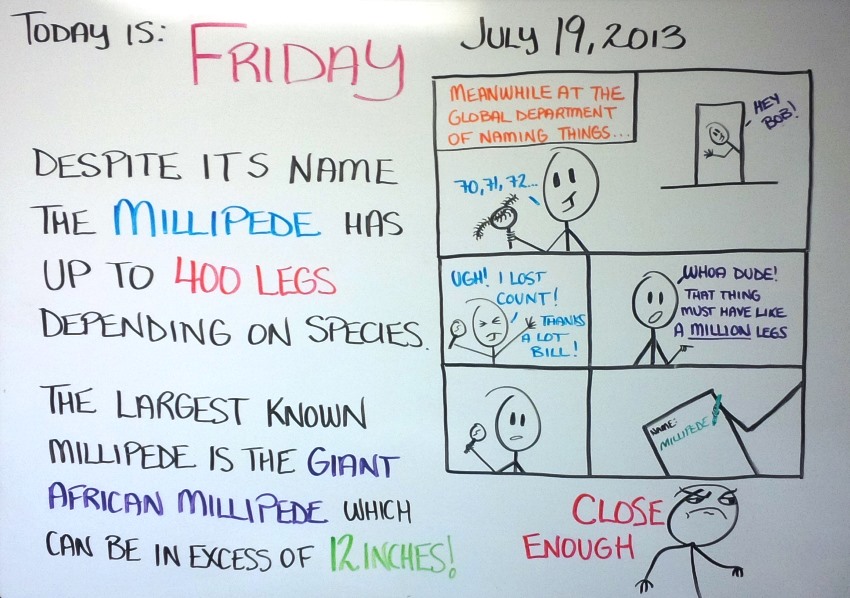 TODAY IS: FRIDAY JULY 19, 2013
DESPITE ITS NAME
THE MILLIPEDE HAS
UP TO 400 LEGS
DEPENDING ON SPECIES.
THE LARGEST KNOWN
MILLIPEDE IS THE GIANT
AFRICAN MILLIPEDE WHICH
CAN BE IN EXCESS OF 12 INCHES!
MEANWHILE AT THE
GLOBAL DEPARTMENT
OF NAMING THINGS...
70, 71, 72...
HEY
BOB!
UGH! I LOST
COUNT!
THANKS
A LOT
BILL!
WHOA DUDE!
THAT THING
MUST HAVE LIKE
A MILLION LEGS
NAME:
MILLIPEDE
CLOSE
ENOUGH